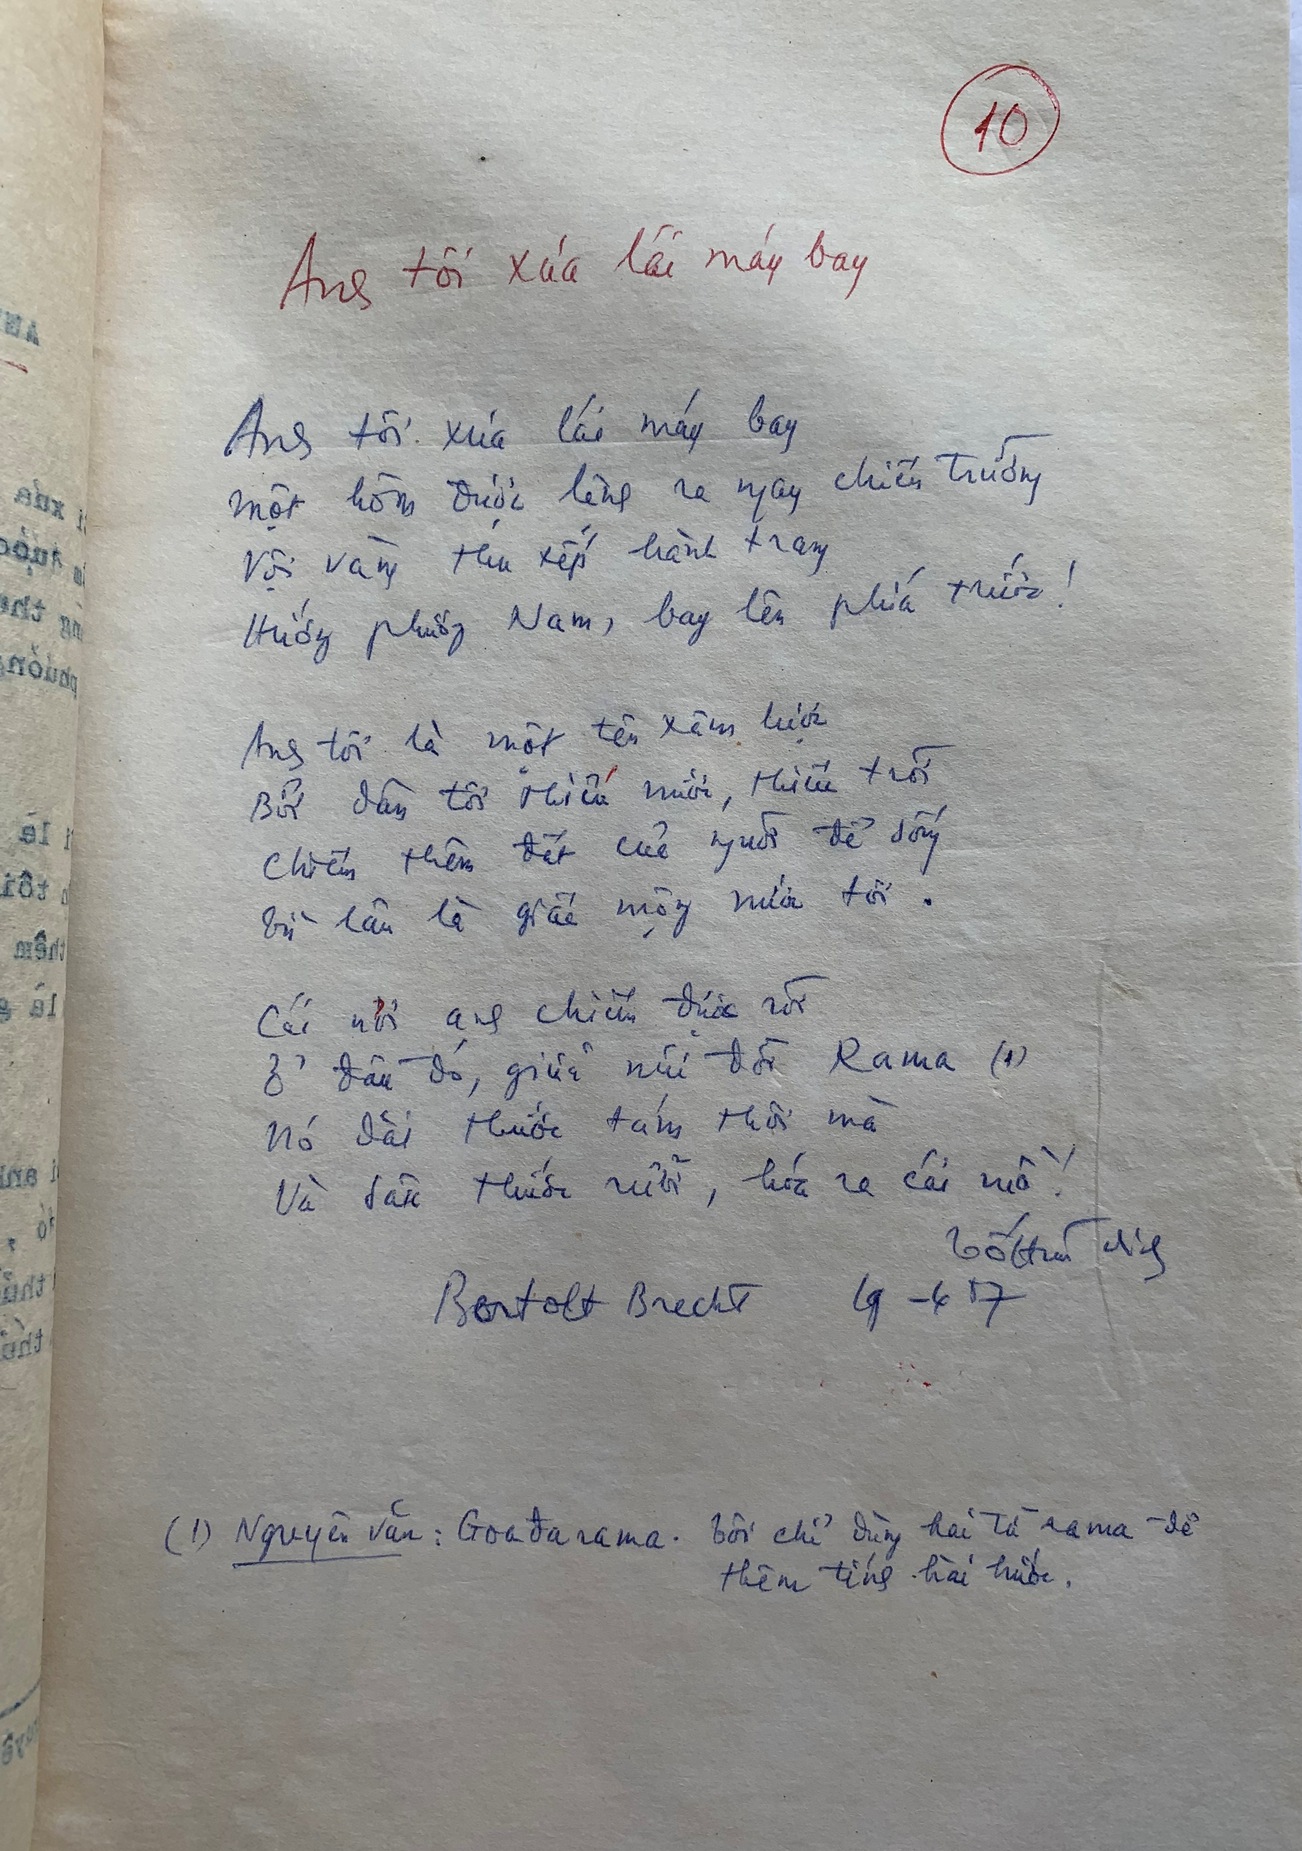 10
Anh tôi xưa lái máy bay
Anh tôi xưa lái máy bay
Một hôm được lệnh ra ngay chiến trường
Vội vàng thu xếp hành trang
Hướng phương Nam, bay lên phía trước!
Anh tôi là một tên xâm lược
Bởi dân tôi thiếu nước, thiếu trời
Chiếm thêm đất của người để sống
Từ lâu là giấc mộng nước tôi.
Cái nơi anh chiếm được rồi
Ở đâu đó, giữa núi đồi Rama (1)
Nó dài thước tám thôi mà
Và sâu thước rưỡi, hóa ra cái mồ!
dịch
Bertolt Brecht 19-4 57
(1) Nguyên văn: Goađarama. Tôi chỉ dùng hai từ rama để
thêm tính hài hước.
AN
i xưa
được
phương
là
tôi
thêm
là g
anh